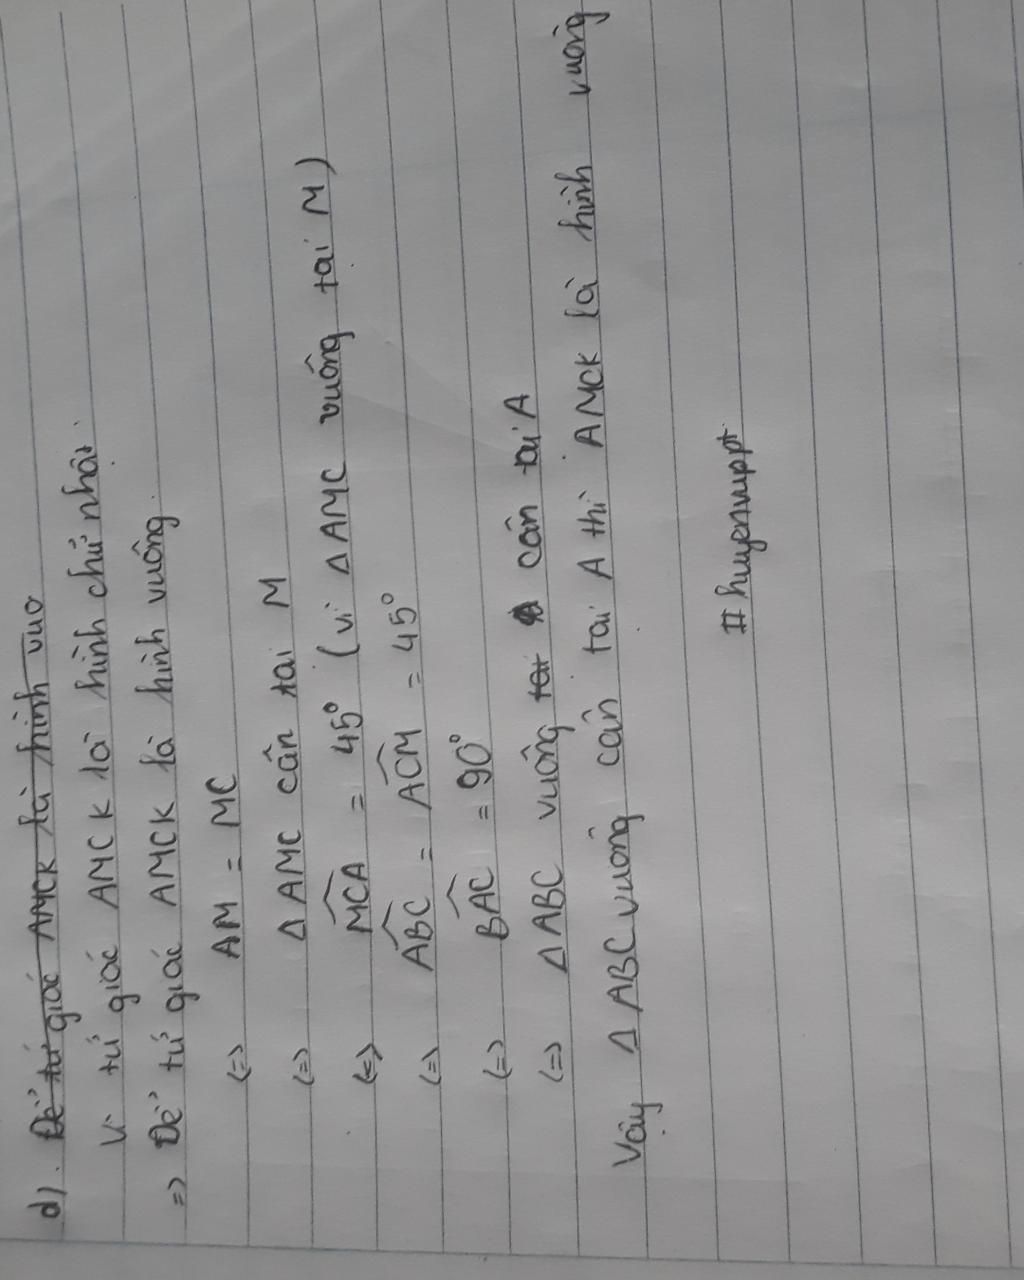 d) . Để tứ giác AMCK là hình vuo
Vì tứ giác AMCK là hình chữ nhật.
=> Để tứ giác AMCK là hình vuông.
(=) AM = MC
(=) Δ AMC cân tại M
(=) MCA = 45° (vì Δ AMC vuông tại M)
(=) ABC = ACM = 45°
(=) BAC = 90°
(=) Δ ABC vuông tại cân tại A
Vậy Δ ABC vuông cân tại A thì AMCK là hình vuông